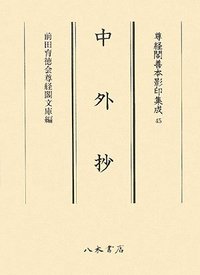 尊経閣善本影印集成 45
中外抄
前田育徳会尊経閣文庫編
八木書店